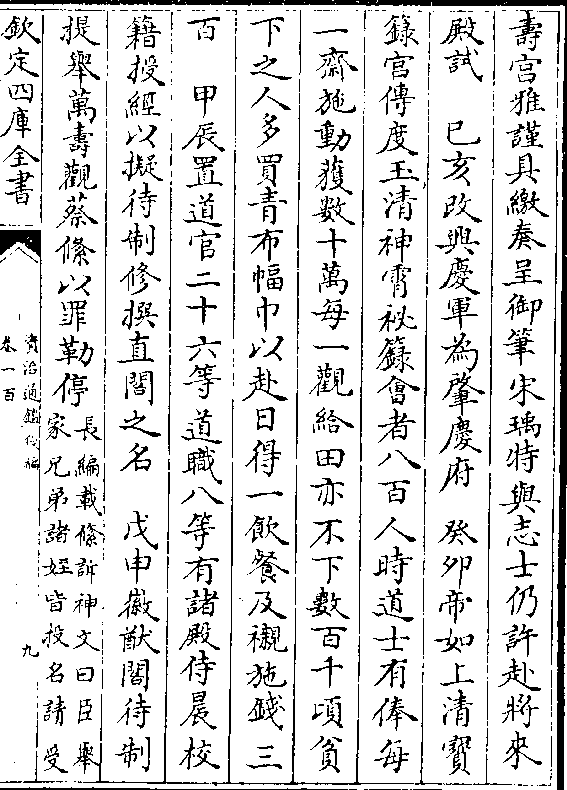 壽宮雅謹具繳奏呈御筆宋瑀特與志士仍許赴將來
殿試　己亥改興慶軍為肇慶府　癸卯帝如上清寳
籙宫傳度玉清神霄祕籙會者八百人時道士有俸每
一齋施動獲數十萬每一觀給田亦不下數百千頃貧
下之人多買青布幅巾以赴日得一飲餐及襯施錢三
百　甲辰置道官二十六等道職八等有諸殿侍晨校
籍授經以擬待制修撰直閣之名　戊申徽猷閣待制
提舉萬壽觀蔡絛以罪勒停
長編載絛訴神文曰臣舉
家兄弟諸姪皆投名請受
欽定四庫全書
資治通鑑後編
卷一百
九